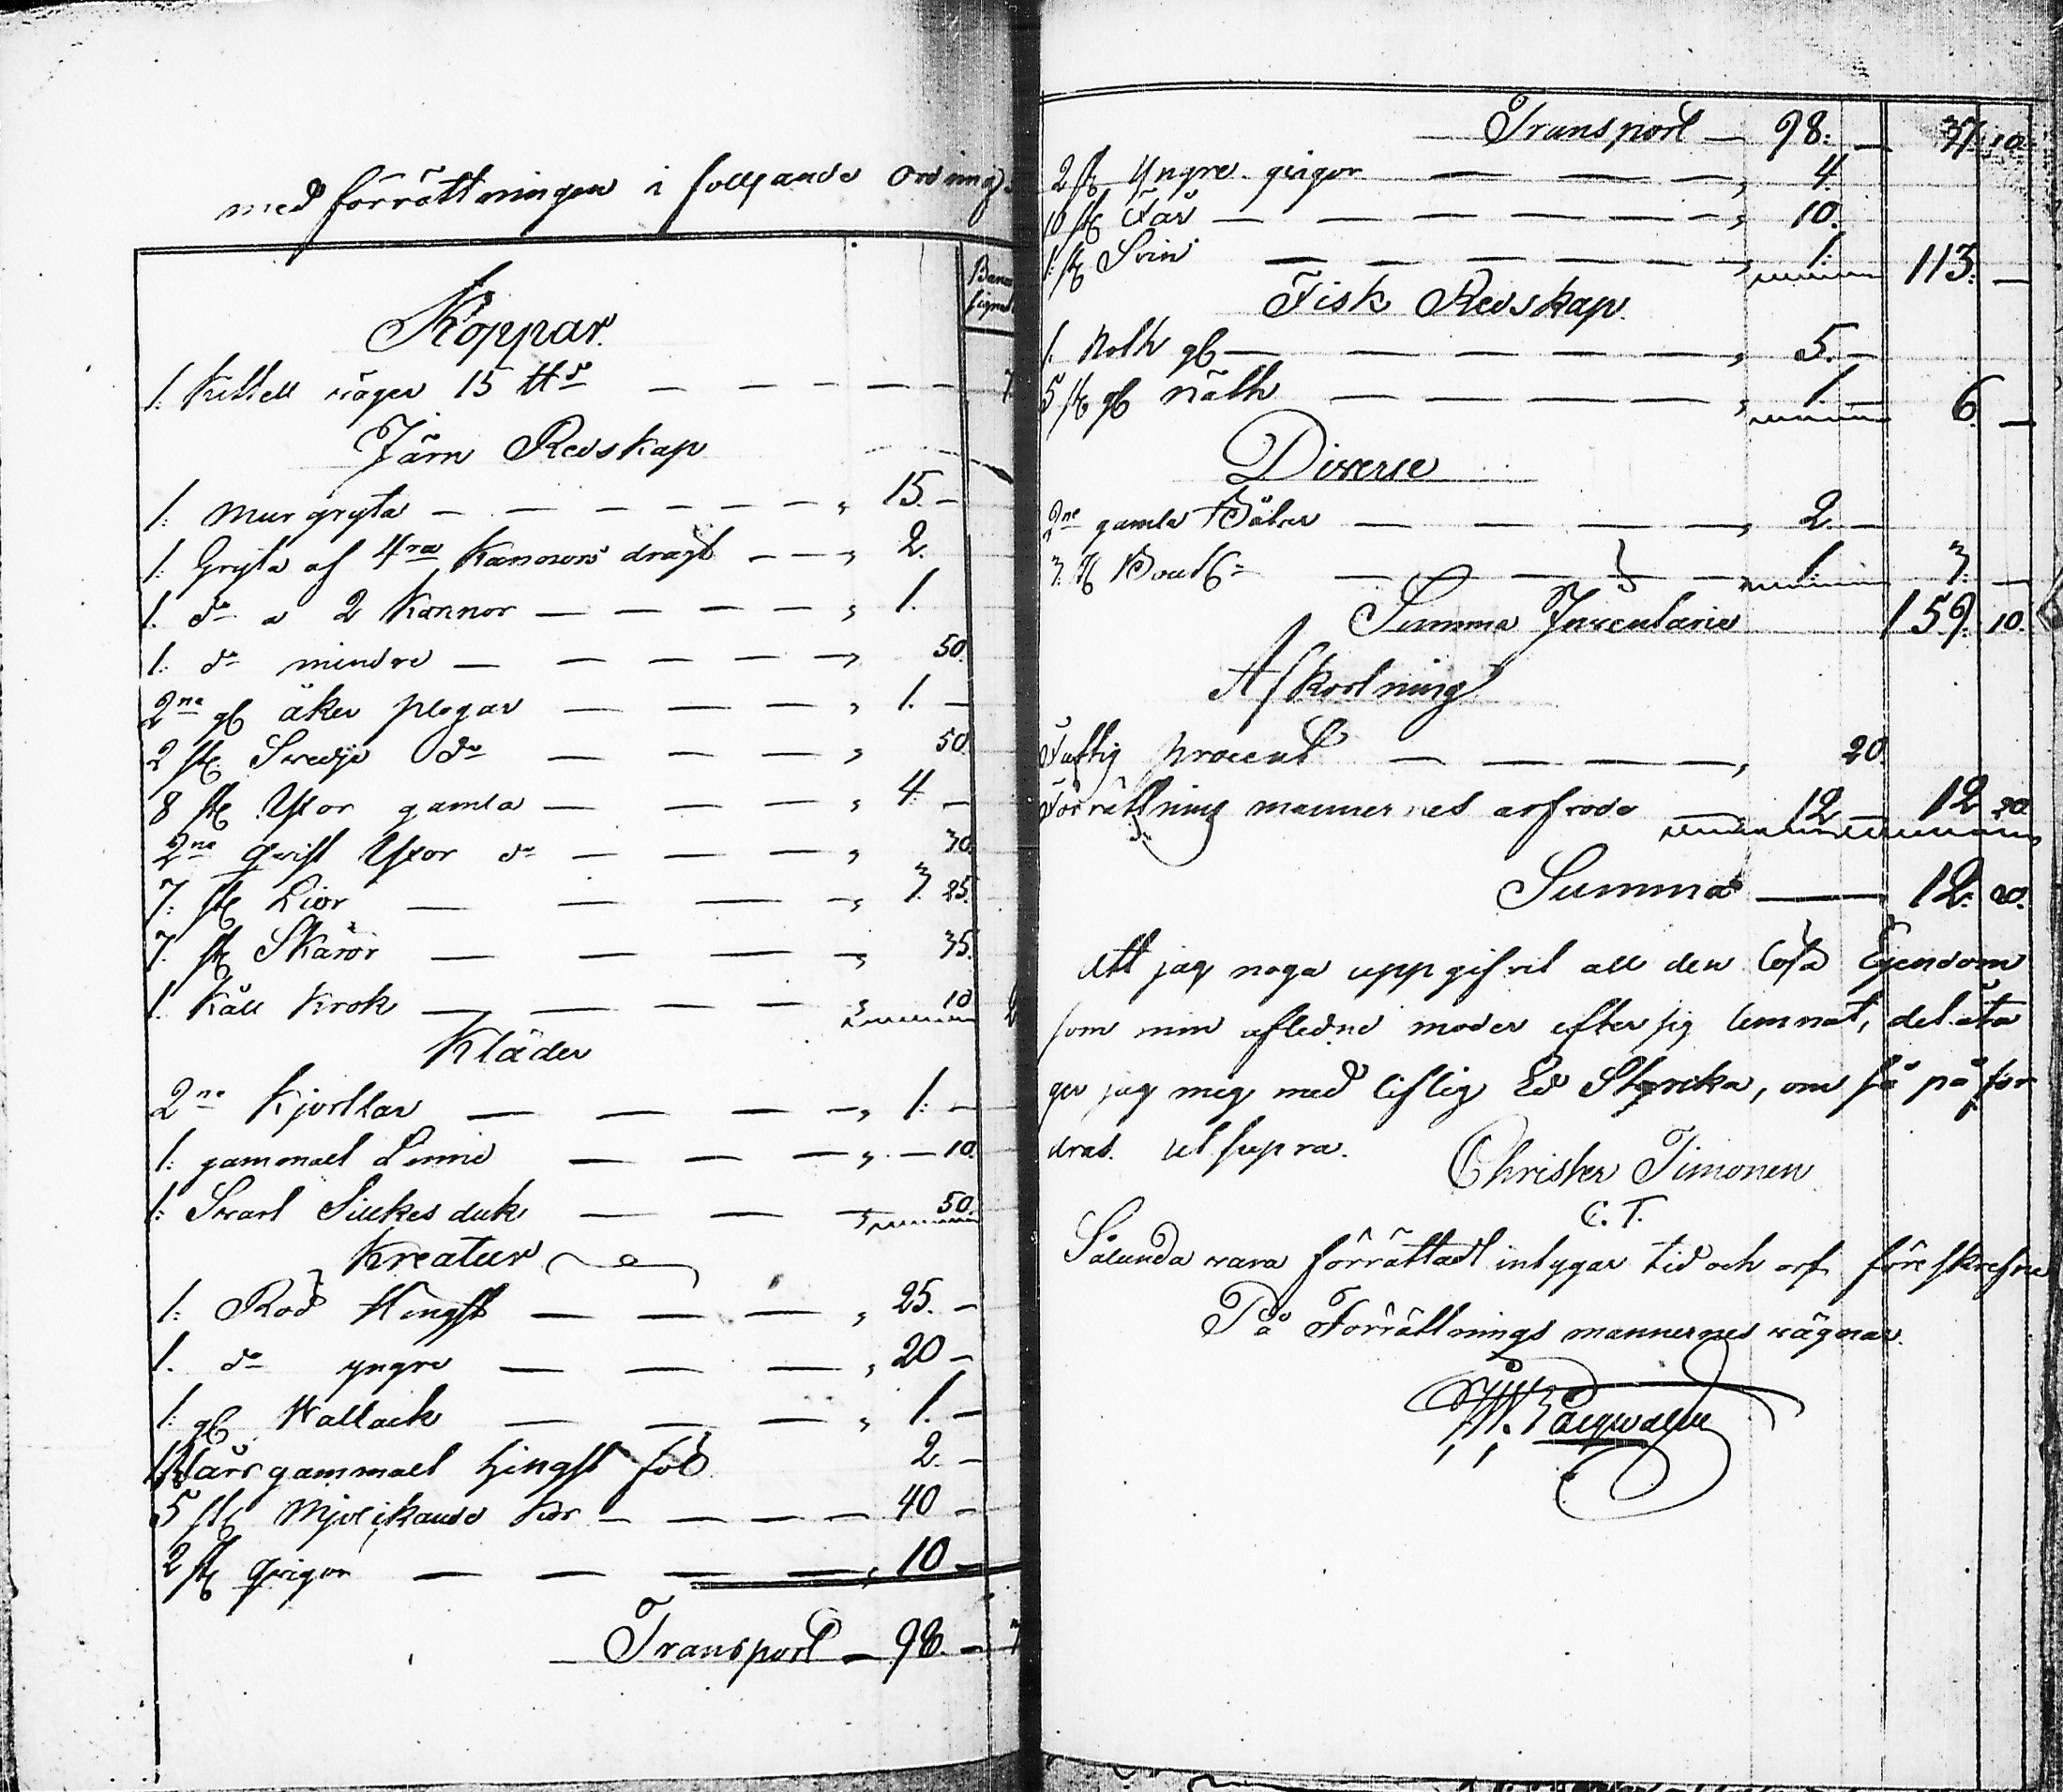 med förrättningen ifölljande ordning.
Banco
Koppar.
1: Kittell wäger 15 ℔r — — — — 7
Järn Redskap
1: mur gryta — — — — — — " 15. —
1: Gryta af 4ra Kannors dragt — — — " 2.
1. do a 2 Kannor — — — — " 1.
1: do mindre — — — — — " 50.
2ne gl åker plogar — — — — " 1. —
2 st Swedje do — — — " 50.
8 st Yxor gamla — — — " 4. —
2ne qwist Yxor do — — — " 30.
7: st Lior — — — — " 3. 25.
7. st Skäror — — — — " 35.
1. Käll Krok — — — — " 10 2
Kläder
2ne Kjortlar — — — — " 1: —
1: gammalt Linne — — — " — 10.
1: Swart Silkes duk — — — " 50.
Kreatur
1: Röd Hingst — — — " 25. —
1. do yngre — — — " 20 —
1: gl Wallack — — — " 1. —
1 st års gammalt hingst föl 2. —
5 st Mjölckande Kor — — — — 40 —
2 st qwigor — — — — " 10 —
Transport — 98. — 3
Transport — 98: — 37. 10.
2 st yngre qwigor — — — — " 4.
10 st Får — — — — — — " 10.
1: st Svin — — — — — — " 1. 113. —
Fisk Redskap.
1. Noth gl — — — — — " 5. —
5 st gl näth — — — — " 1 — 6. —
Diverse
2ne gamla Båtar — — — — " 2. —
3: st — — — — 1. 3. —
Summa Inventarie 159. 10.
Afkortning
Fattig procent — — — — " 20.
Förrättning mannernes arfvode — 12 — 12 20.
Summa — 12. 20.
Att jag noga uppgifvit all den lösa Egendom
som min afledne moder efter sig lemnat, det åta
ger jag mig med liflig Ed Styrcka, om så på for
dras. ut supra.
Christer Timonen
C. T.
Sålunda vara förrättadt intygar tid och ort föreskrefne
På Förrättnings mannernes wägnar.